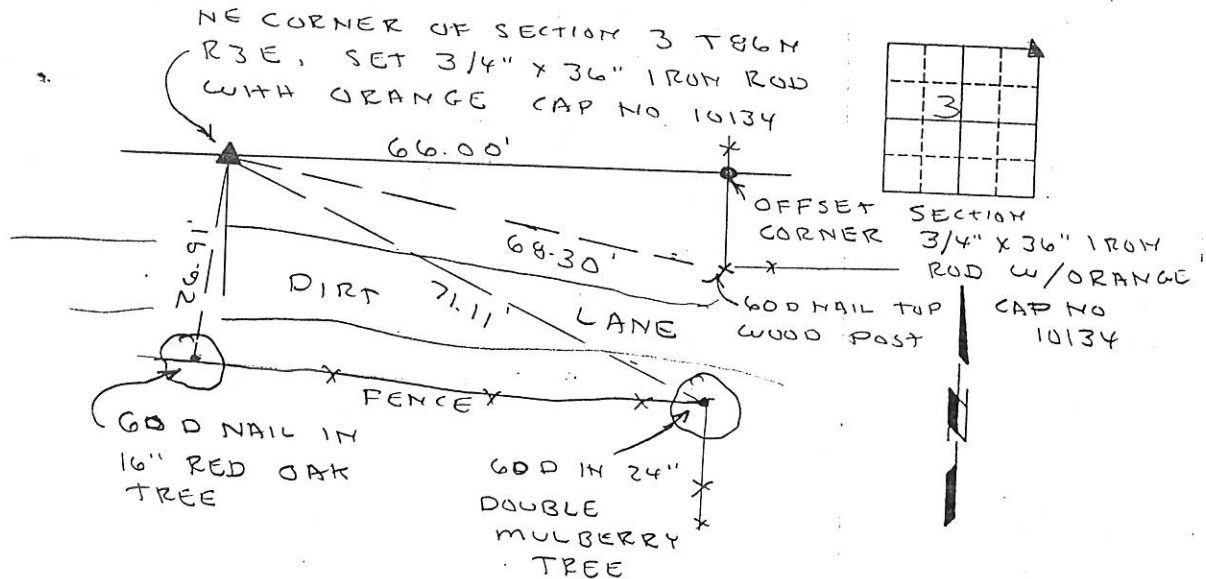 NE CORNER OF SECTION 3 T86N
R3E, SET 3/4" X 36" IRON ROD
WITH ORANGE CAP NO 10134
66.00'
3
OFFSET
CORNER
SECTION
3/4" X 36" IRON
ROD W/ORANGE
CAP NO
10134
26.91'
68.30'
71.11'
DIRT LANE
60D NAIL TOP
WOOD POST
FENCE
60D NAIL IN
16" RED OAK
TREE
60D IN 24"
DOUBLE
MULBERRY
TREE